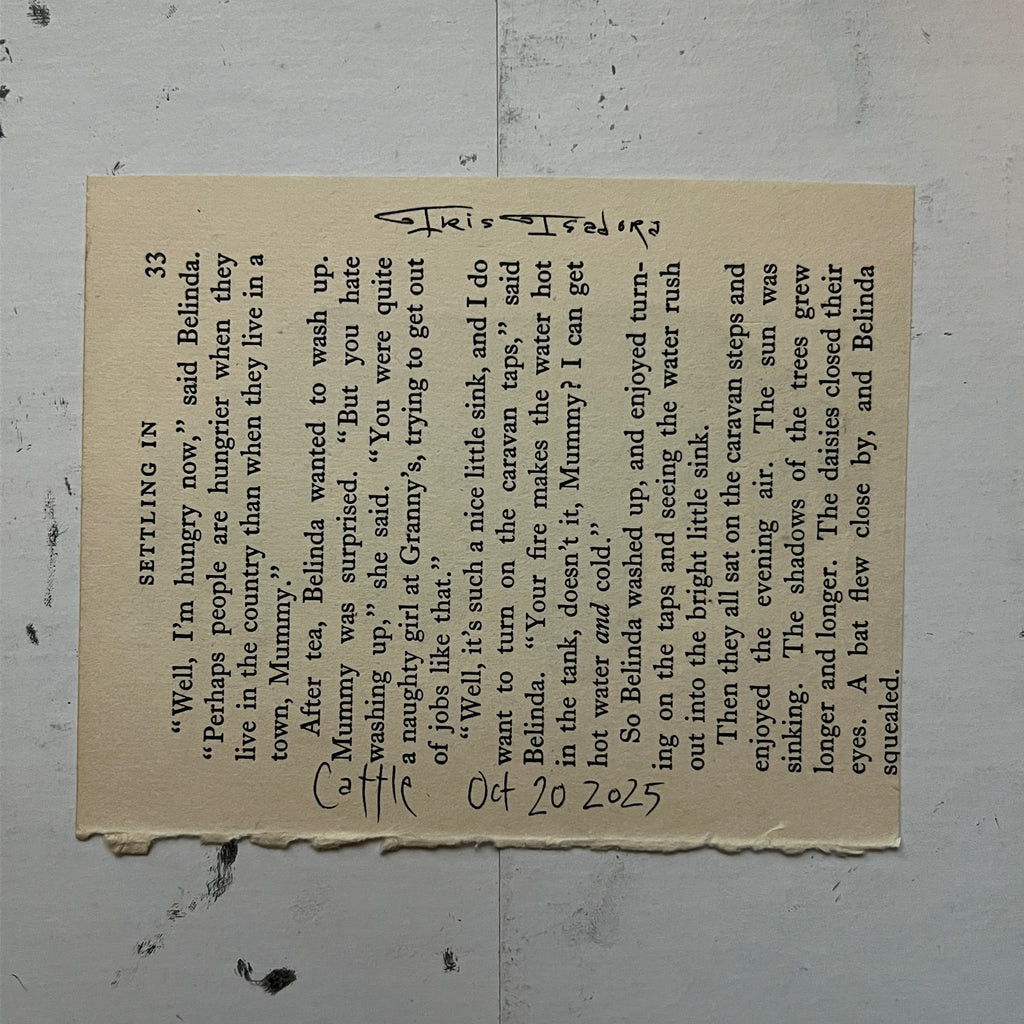 SETTLING IN 33
“Well, I’m hungry now,” said Belinda.
“Perhaps people are hungrier when they
live in the country than when they live in a
town, Mummy.”
After tea, Belinda wanted to wash up.
Mummy was surprised. “But you hate
washing up,” she said. “You were quite
a naughty girl at Granny’s, trying to get out
of jobs like that.”
“Well, it’s such a nice little sink, and I do
want to turn on the caravan taps,” said
Belinda. “Your fire makes the water hot
in the tank, doesn’t it, Mummy? I can get
hot water and cold.”
So Belinda washed up, and enjoyed turn-
ing on the taps and seeing the water rush
out into the bright little sink.
Then they all sat on the caravan steps and
enjoyed the evening air. The sun was
sinking. The shadows of the trees grew
longer and longer. The daisies closed their
eyes. A bat flew close by, and Belinda
squealed.
Oct 20 2025